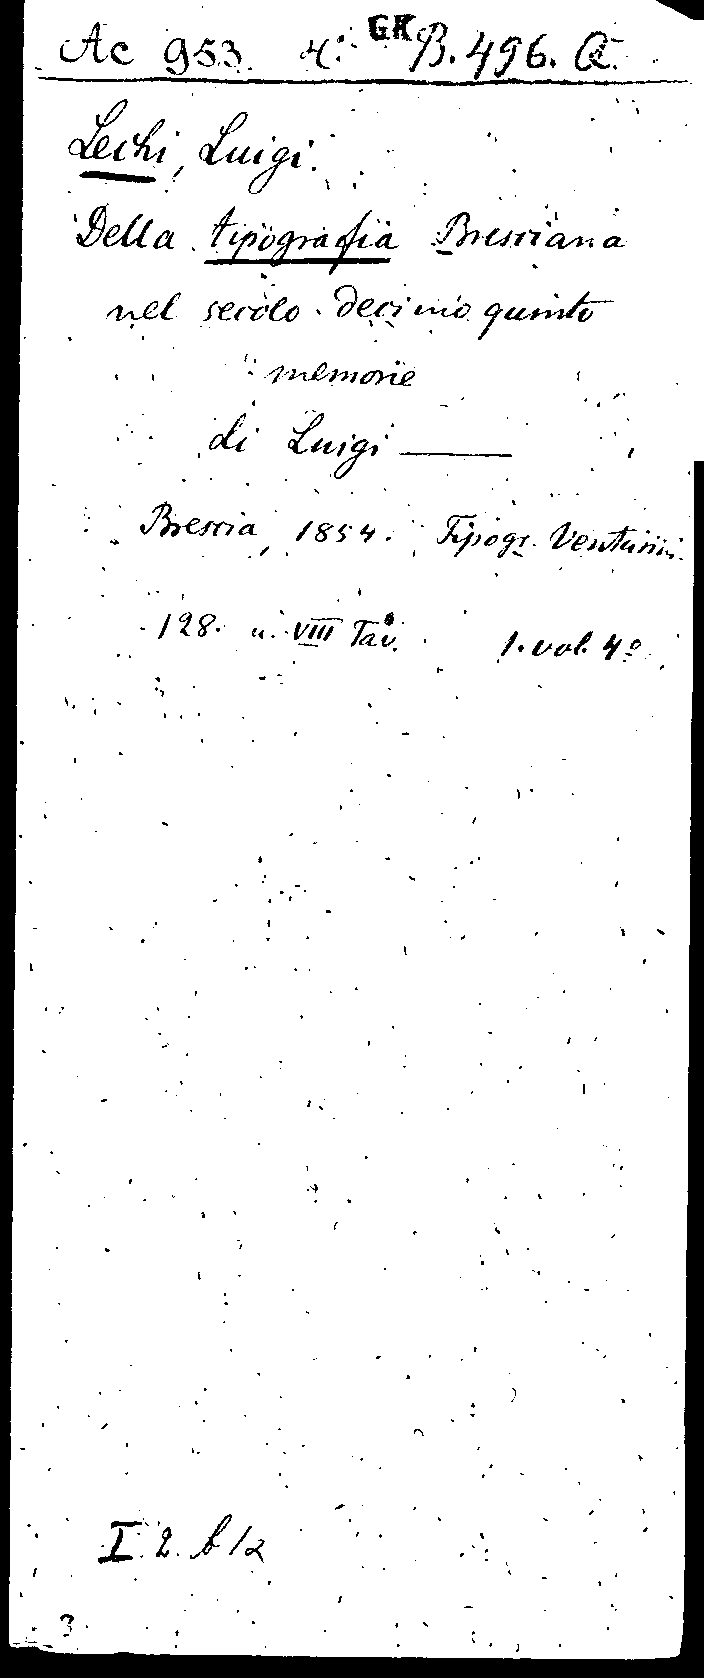 Ac 953. 4.° GK B.496.Q.
Lechi, Luigi.
Della tipografia Bresciana
nel secolo decimo quinto
memorie
di Luigi ———
Brescia, 1854. Tipogr. Venturini.
128. u. VIII Tav. 1. vol. 4º
I 2. b/2
3